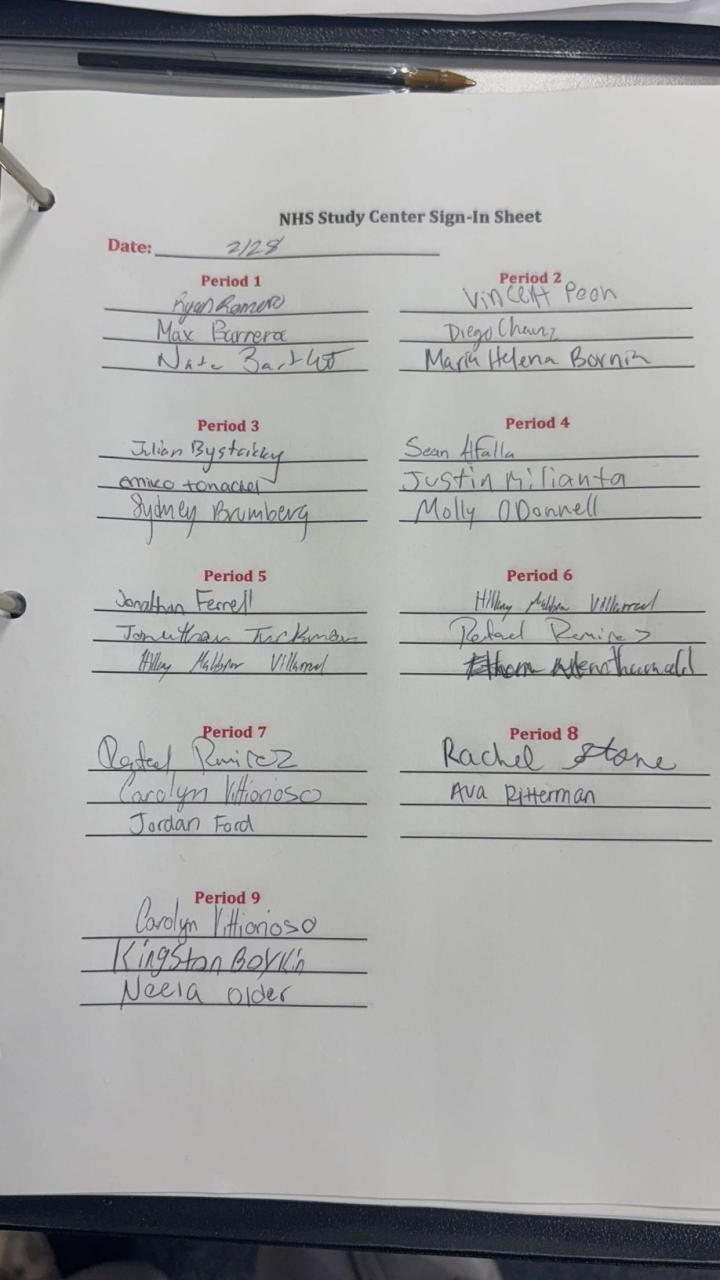 NHS Study Center Sign-In Sheet
Date: 2/28
Period 1
Ryan Romero
Max Barrera
Nate Bartlett
Period 2
Vincent Peon
Diego
Maria Helena Bornia
Period 3
Julian Bystricky
amiko tonachel
Sydney Brumberg
Period 4
Sean Afalla
Justin Milianta
Molly O'Donnell
Period 5
Jonathan Ferrell
Jonathan Turkman
Villarreal
Period 6
Villarreal
Rafael Ramirez
Period 7
Rafael Ramirez
Carolyn Vittorioso
Jordan Ford
Period 8
Rachel Stone
Ava Ritterman
Period 9
Carolyn Vittorioso
Kingston Boykin
Neela Older